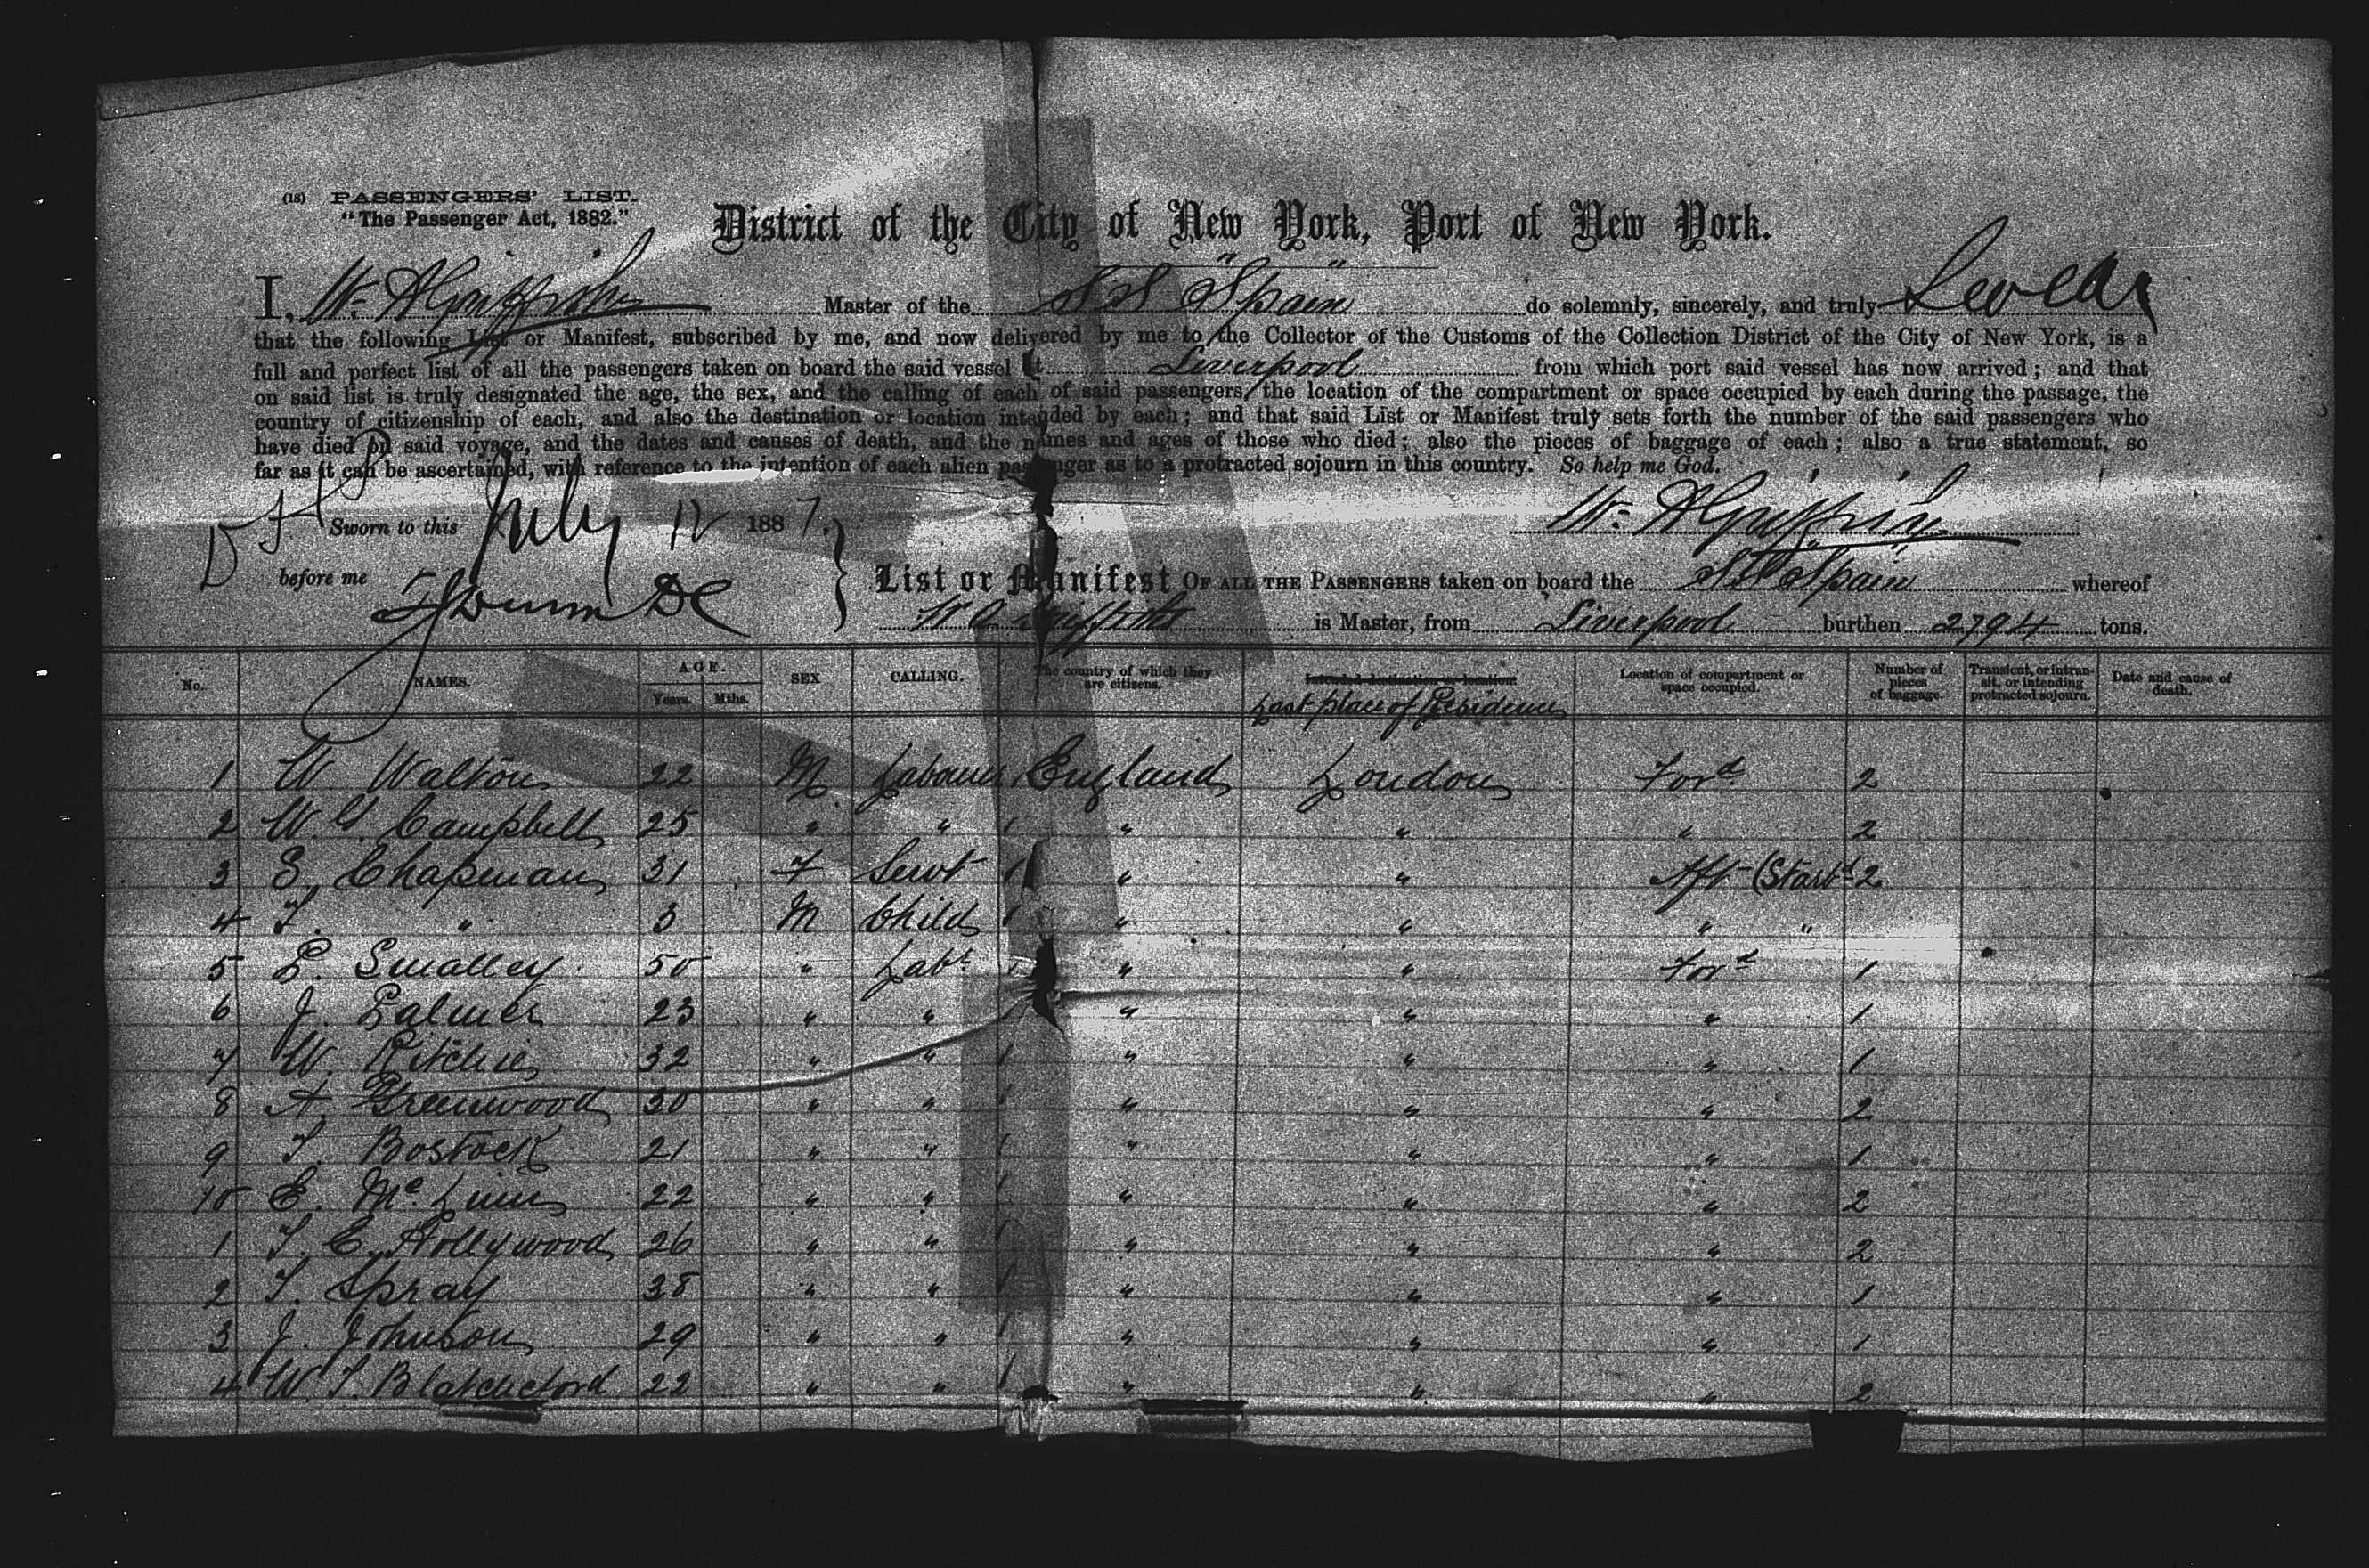 (18) PASSENGERS' LIST.
"The Passenger Act, 1882."
District of the City of New York, Port of New York.
I, W. A Griffiths Master of the SS "Spain" do solemnly, sincerely, and truly Swear
that the following List or Manifest, subscribed by me, and now delivered by me to the Collector of the Customs of the Collection District of the City of New York, is a
full and perfect list of all the passengers taken on board the said vessel at Liverpool from which port said vessel has now arrived; and that
on said list is truly designated the age, the sex, and the calling of each of said passengers, the location of the compartment or space occupied by each during the passage, the
country of citizenship of each, and also the destination or location intended by each; and that said List or Manifest truly sets forth the number of the said passengers who
have died on said voyage, and the dates and causes of death, and the names and ages of those who died; also the pieces of baggage of each; also a true statement, so
far as it can be ascertained, with reference to the intention of each alien passenger as to a protracted sojourn in this country. So help me God.
Sworn to this July 12 1887. W. A Griffiths
before me
List or Manifest OF ALL THE PASSENGERS taken on board the SS "Spain" whereof
W A Griffiths is Master, from Liverpool burthen 2794 tons.
No. NAMES. AGE. Years. Mths. SEX CALLING. The country of which they are citizens. Intended destination or location Last place of Residence Location of compartment or space occupied. Number of pieces of baggage. Transient, or in transit, or intending protracted sojourn. Date and cause of death.
1 W. Walton 22 M Labourer England London Ford 2
2 W. G. Campbell 25 " " " " " 2
3 E. Chapman 31 F Servt " " Aft (Starbd 2
4 T. " 3 M Child " " " "
5 P. Smalley 50 " Labr " " Ford 1
6 J. Palmer 23 " " " " " 1
7 W. Ritchie 32 " " " " " 1
8 A. Greenwood 30 " " " " " 2
9 T. Bostock 21 " " " " " 1
10 E. Mc Linn 22 " " " " " 2
1 T. E. Hollywood 26 " " " " " 2
2 T. Spray 38 " " " " " 1
3 J. Johnson 29 " " " " " 1
4 W T. Blatcheford 22 " " " " " 2